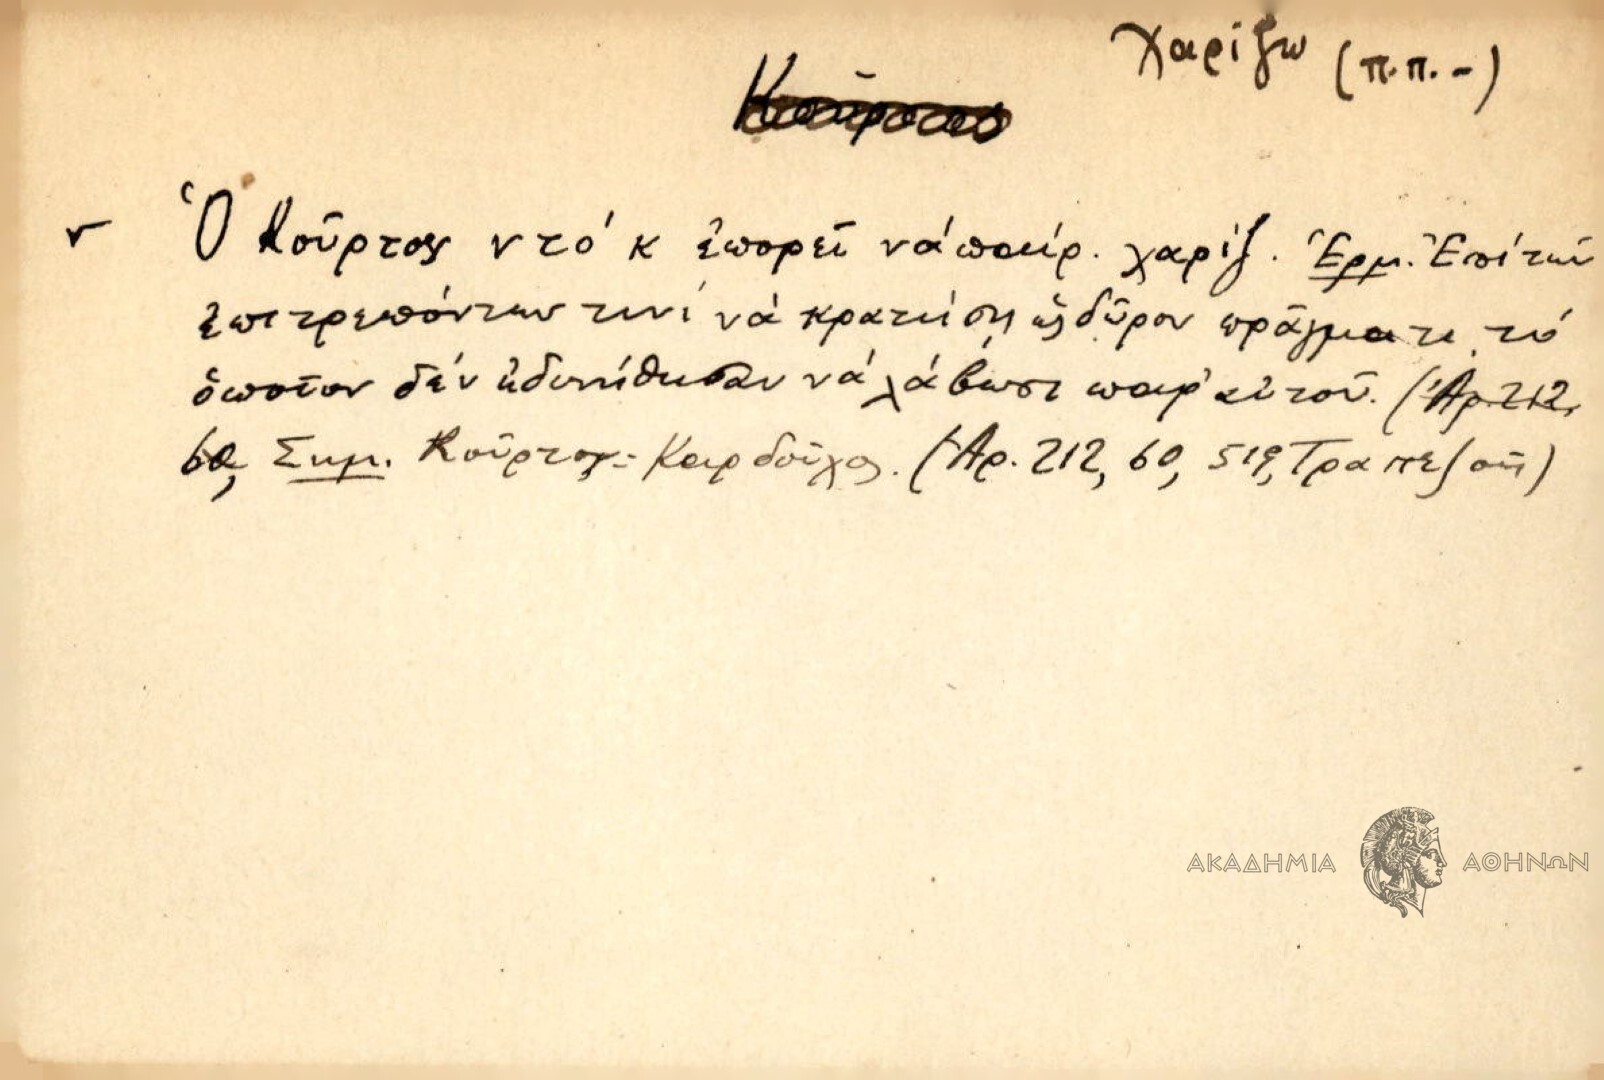 Χαρίζω (π.π.-)
Κούρτος
Ὁ Κοῦρτος ντό κ ἐπορεῖ νά παίρ. χαρίζ. Ἑρμ. Ἐπί τῶν
ἐπιτρεπόντων τινί νά κρατήσῃ ὡς δῶρον πρᾶγμα τι, τό
ὁποῖον δέν ἠδυνήθησαν νά λάβωσι παρ' αὐτοῦ. (Ἀρ. 212,
60, Σημ. Κοῦρτος = Καρδοῦχος. (Ἀρ. 212, 60, 519, Τραπεζοῦς)
ΑΚΑΔΗΜΙΑ ΑΘΗΝΩΝ